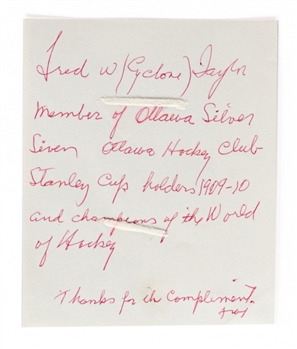 Fred W (Cyclone) Taylor
Member of Ottawa Silver
Seven Ottawa Hockey Club
Stanley Cup holders 1909-10
and champions of the World
of Hockey
Thanks for the Compliment.